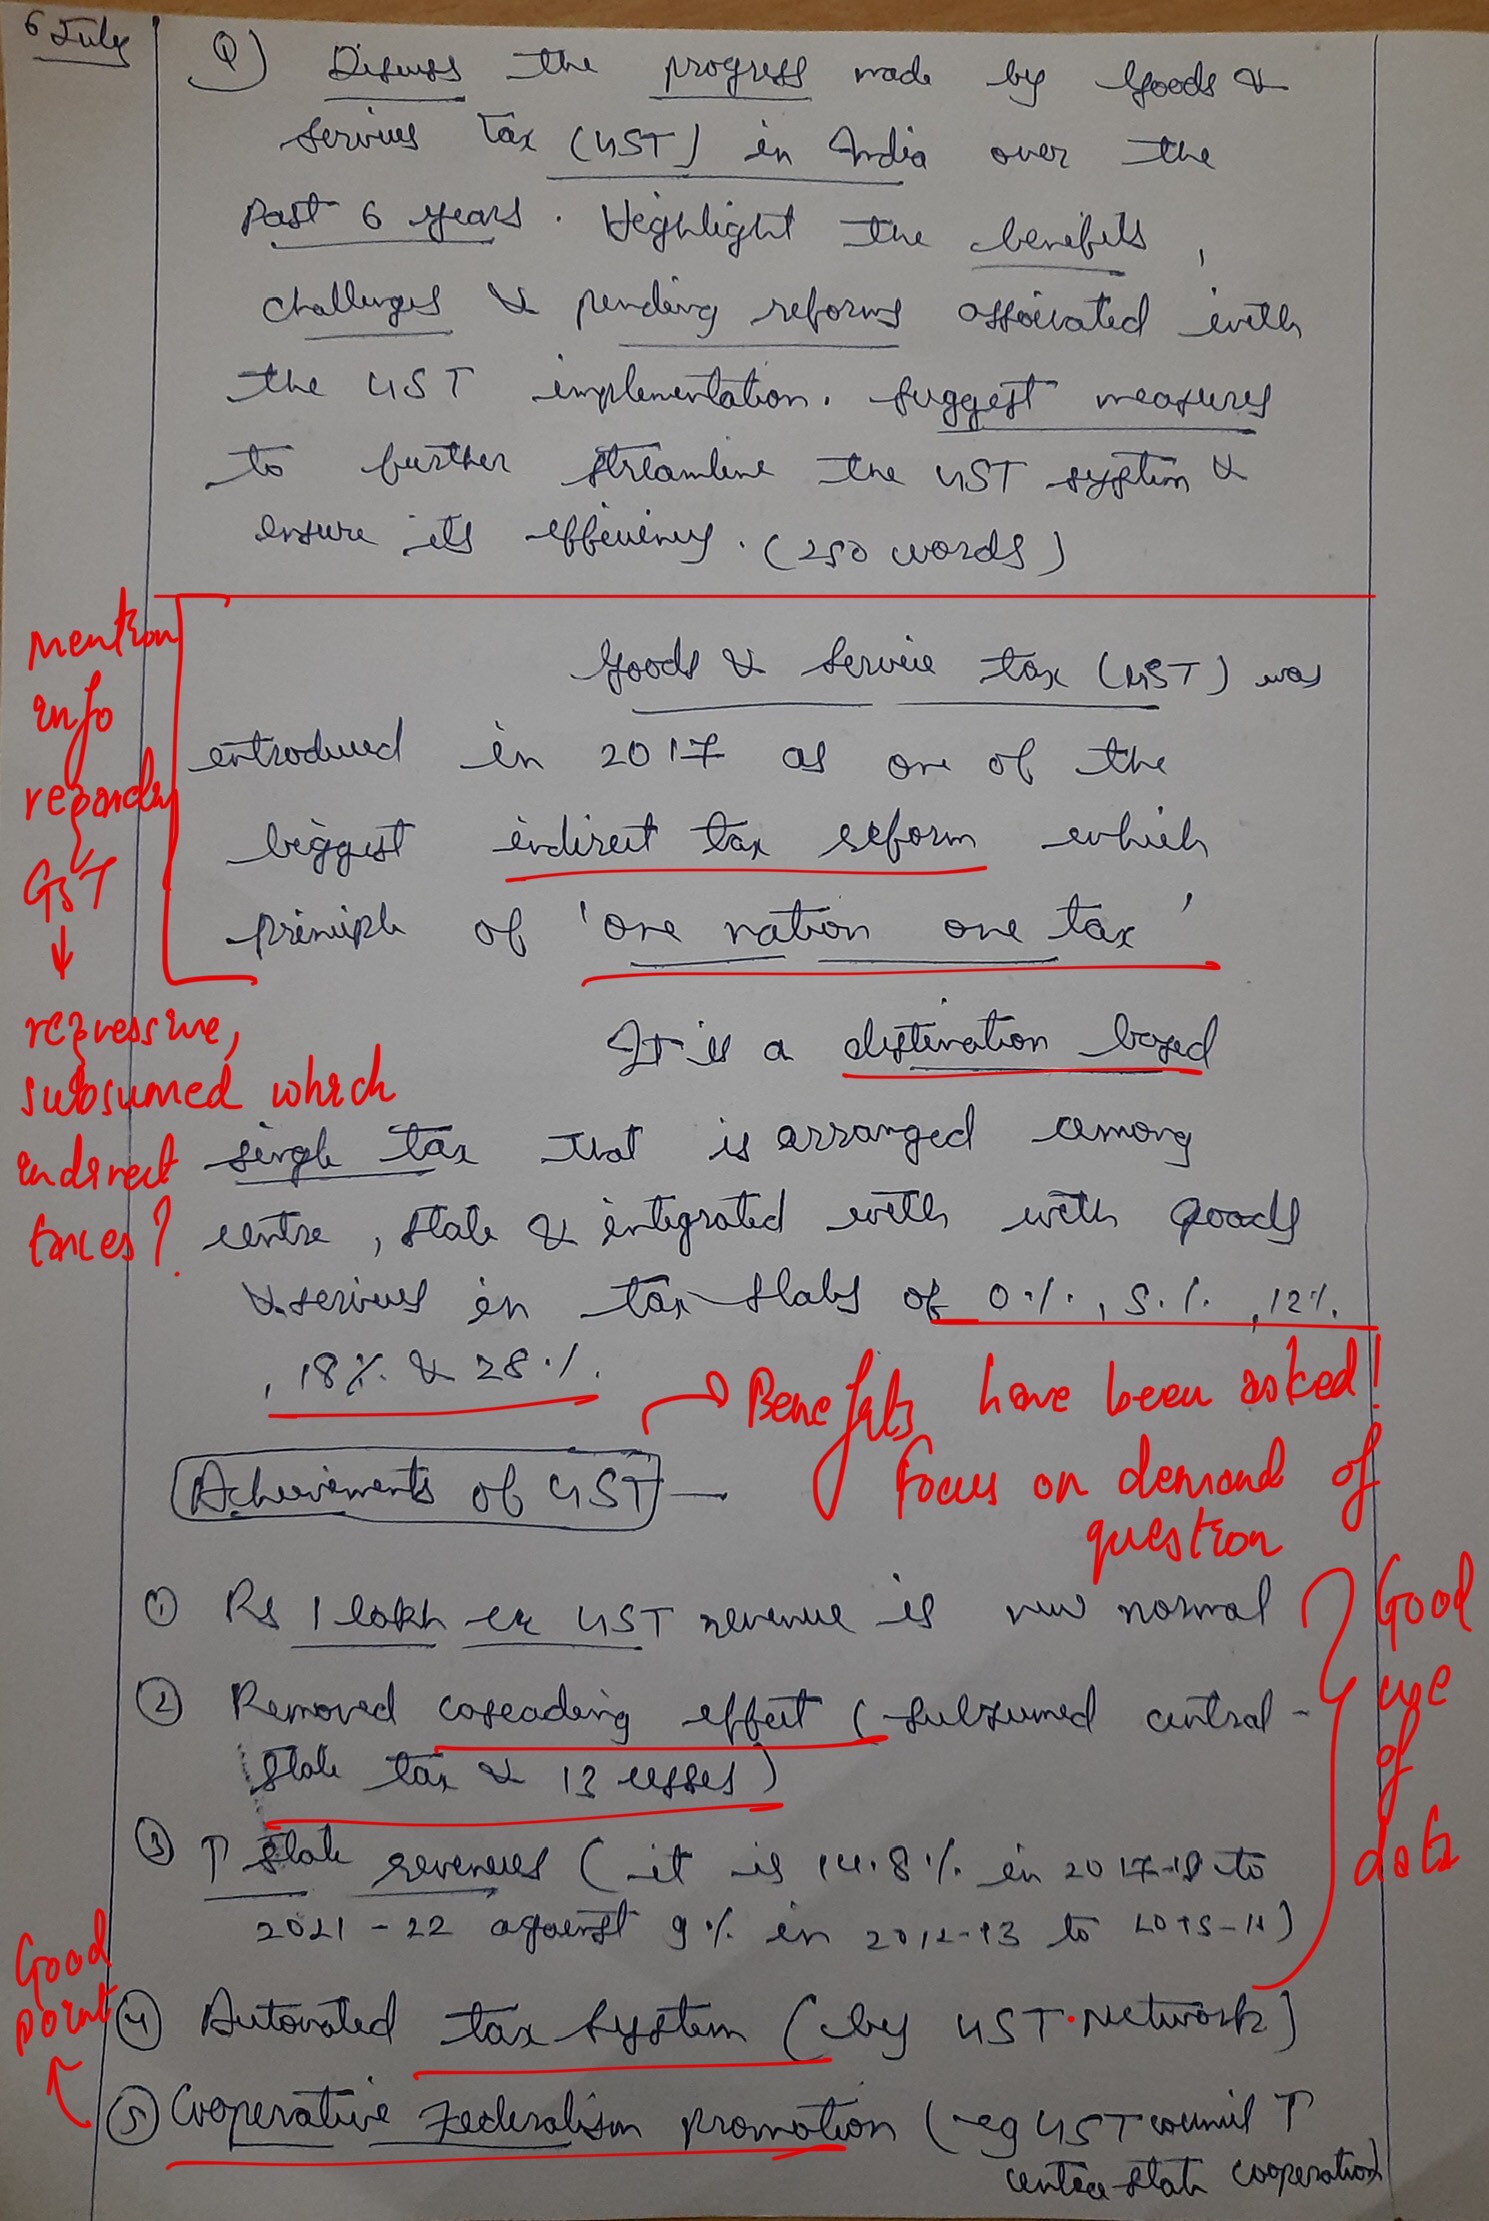 6 July
Q) Discuss the progress made by Goods &
Services Tax (GST) in India over the
Past 6 years. Highlight the benefits,
challenges & pending reforms associated with
the GST implementation. Suggest measures
to further streamline the GST system &
ensure its efficiency. (250 words)
Mention
info
regarding
GST
↓
regressive,
subsumed which
indirect
taxes?
Goods & Service tax (GST) was
introduced in 2017 as one of the
biggest indirect tax reform which
principle of 'one nation one tax'
It is a destination based
single tax that is arranged among
centre, state & integrated with with goods
& services in tax slabs of 0%, 5%, 12%
, 18% & 28%.
→ Benefits have been asked!
Focus on demand of
question
Achievements of GST —
① Rs 1 lakh cr GST revenue is new normal
② Removed cascading effect (subsumed central-
state tax & 13 cesses)
③ ↑ state revenues (it is 14.8% in 2017-18 to
2021-22 against 9% in 2012-13 to 2015-16)
Good
use
of
data
④ Automated tax system (by GST Network)
Good
point
⑤ Cooperative Federalism promotion (eg GST council ↑
centre-state cooperation)